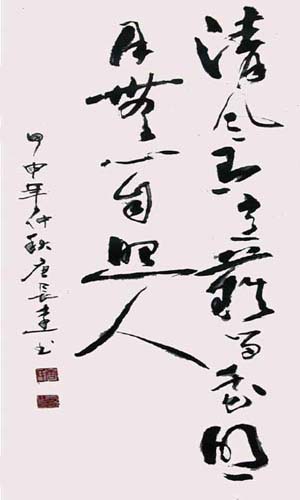 清风有意難留我明
月無心自照人
甲申年仲秋長书